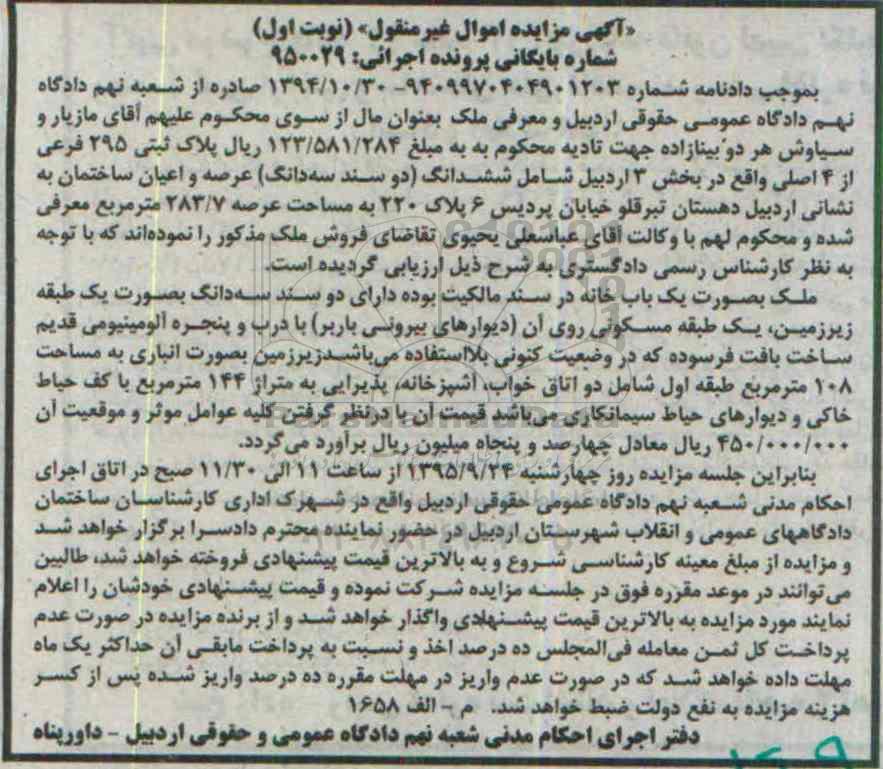 «آگهی مزایده اموال غیرمنقول» (نوبت اول)
شماره بایگانی پرونده اجرائی: ۹۵۰۰۲۹
بموجب دادنامه شماره ۹۴۰۹۹۷۰۴۰۴۹۰۱۲۰۳- ۱۳۹۴/۱۰/۳۰ صادره از شعبه نهم دادگاه
نهم دادگاه عمومی حقوقی اردبیل و معرفی ملک بعنوان مال از سوی محکوم علیهم آقای مازیار و
سیاوش هر دو بینازاده جهت تادیه محکوم به به مبلغ ۱۲۳/۵۸۱/۲۸۴ ریال پلاک ثبتی ۲۹۵ فرعی
از ۴ اصلی واقع در بخش ۳ اردبیل شامل ششدانگ (دو سند سه‌دانگ) عرصه و اعیان ساختمان به
نشانی اردبیل دهستان تبرقلو خیابان پردیس ۶ پلاک ۲۲۰ به مساحت عرصه ۲۸۳/۷ مترمربع معرفی
شده و محکوم لهم با وکالت آقای عباسعلی یحیوی تقاضای فروش ملک مذکور را نموده‌اند که با توجه
به نظر کارشناس رسمی دادگستری به شرح ذیل ارزیابی گردیده است.
ملک بصورت یک باب خانه در سند مالکیت بوده دارای دو سند سه‌دانگ بصورت یک طبقه
زیرزمین، یک طبقه مسکونی روی آن (دیوارهای بیرونی باربر) با درب و پنجره آلومینیومی قدیم
ساخت بافت فرسوده که در وضعیت کنونی بلااستفاده می‌باشدزیرزمین بصورت انباری به مساحت
۱۰۸ مترمربع طبقه اول شامل دو اتاق خواب، آشپزخانه، پذیرایی به متراژ ۱۴۴ مترمربع با کف حیاط
خاکی و دیوارهای حیاط سیمانکاری می‌باشد قیمت آن با درنظر گرفتن کلیه عوامل موثر و موقعیت آن
۴۵۰/۰۰۰/۰۰۰ ریال معادل چهارصد و پنجاه میلیون ریال برآورد می‌گردد.
بنابراین جلسه مزایده روز چهارشنبه ۱۳۹۵/۹/۲۴ از ساعت ۱۱ الی ۱۱/۳۰ صبح در اتاق اجرای
احکام مدنی شعبه نهم دادگاه عمومی حقوقی اردبیل واقع در شهرک اداری کارشناسان ساختمان
دادگاههای عمومی و انقلاب شهرستان اردبیل در حضور نماینده محترم دادسرا برگزار خواهد شد
و مزایده از مبلغ معینه کارشناسی شروع و به بالاترین قیمت پیشنهادی فروخته خواهد شد، طالبین
می‌توانند در موعد مقرره فوق در جلسه مزایده شرکت نموده و قیمت پیشنهادی خودشان را اعلام
نمایند مورد مزایده به بالاترین قیمت پیشنهادی واگذار خواهد شد و از برنده مزایده در صورت عدم
پرداخت کل ثمن معامله فی‌المجلس ده درصد اخذ و نسبت به پرداخت مابقی آن حداکثر یک ماه
مهلت داده خواهد شد که در صورت عدم واریز در مهلت مقرره ده درصد واریز شده پس از کسر
هزینه مزایده به نفع دولت ضبط خواهد شد. م - الف ۱۶۵۸
دفتر اجرای احکام مدنی شعبه نهم دادگاه عمومی و حقوقی اردبیل - داورپناه